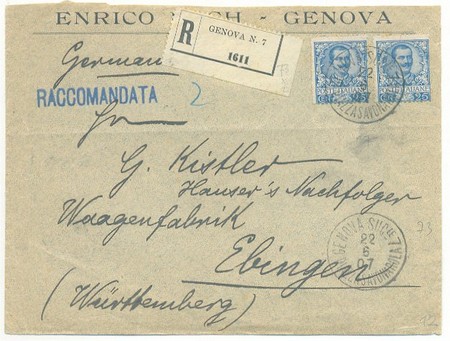 ENRICO CH. - GENOVA
R
GENOVA N. 7
1611
Germania
RACCOMANDATA
2
POSTE ITALIANE
POSTE ITALIANE
25
Hn
G. Kistler
Hauser's Nachfolger
Waagenfabrik
Ebingen
(Württemberg)
GENOVA SUCC. 7
22
6
07
93
12